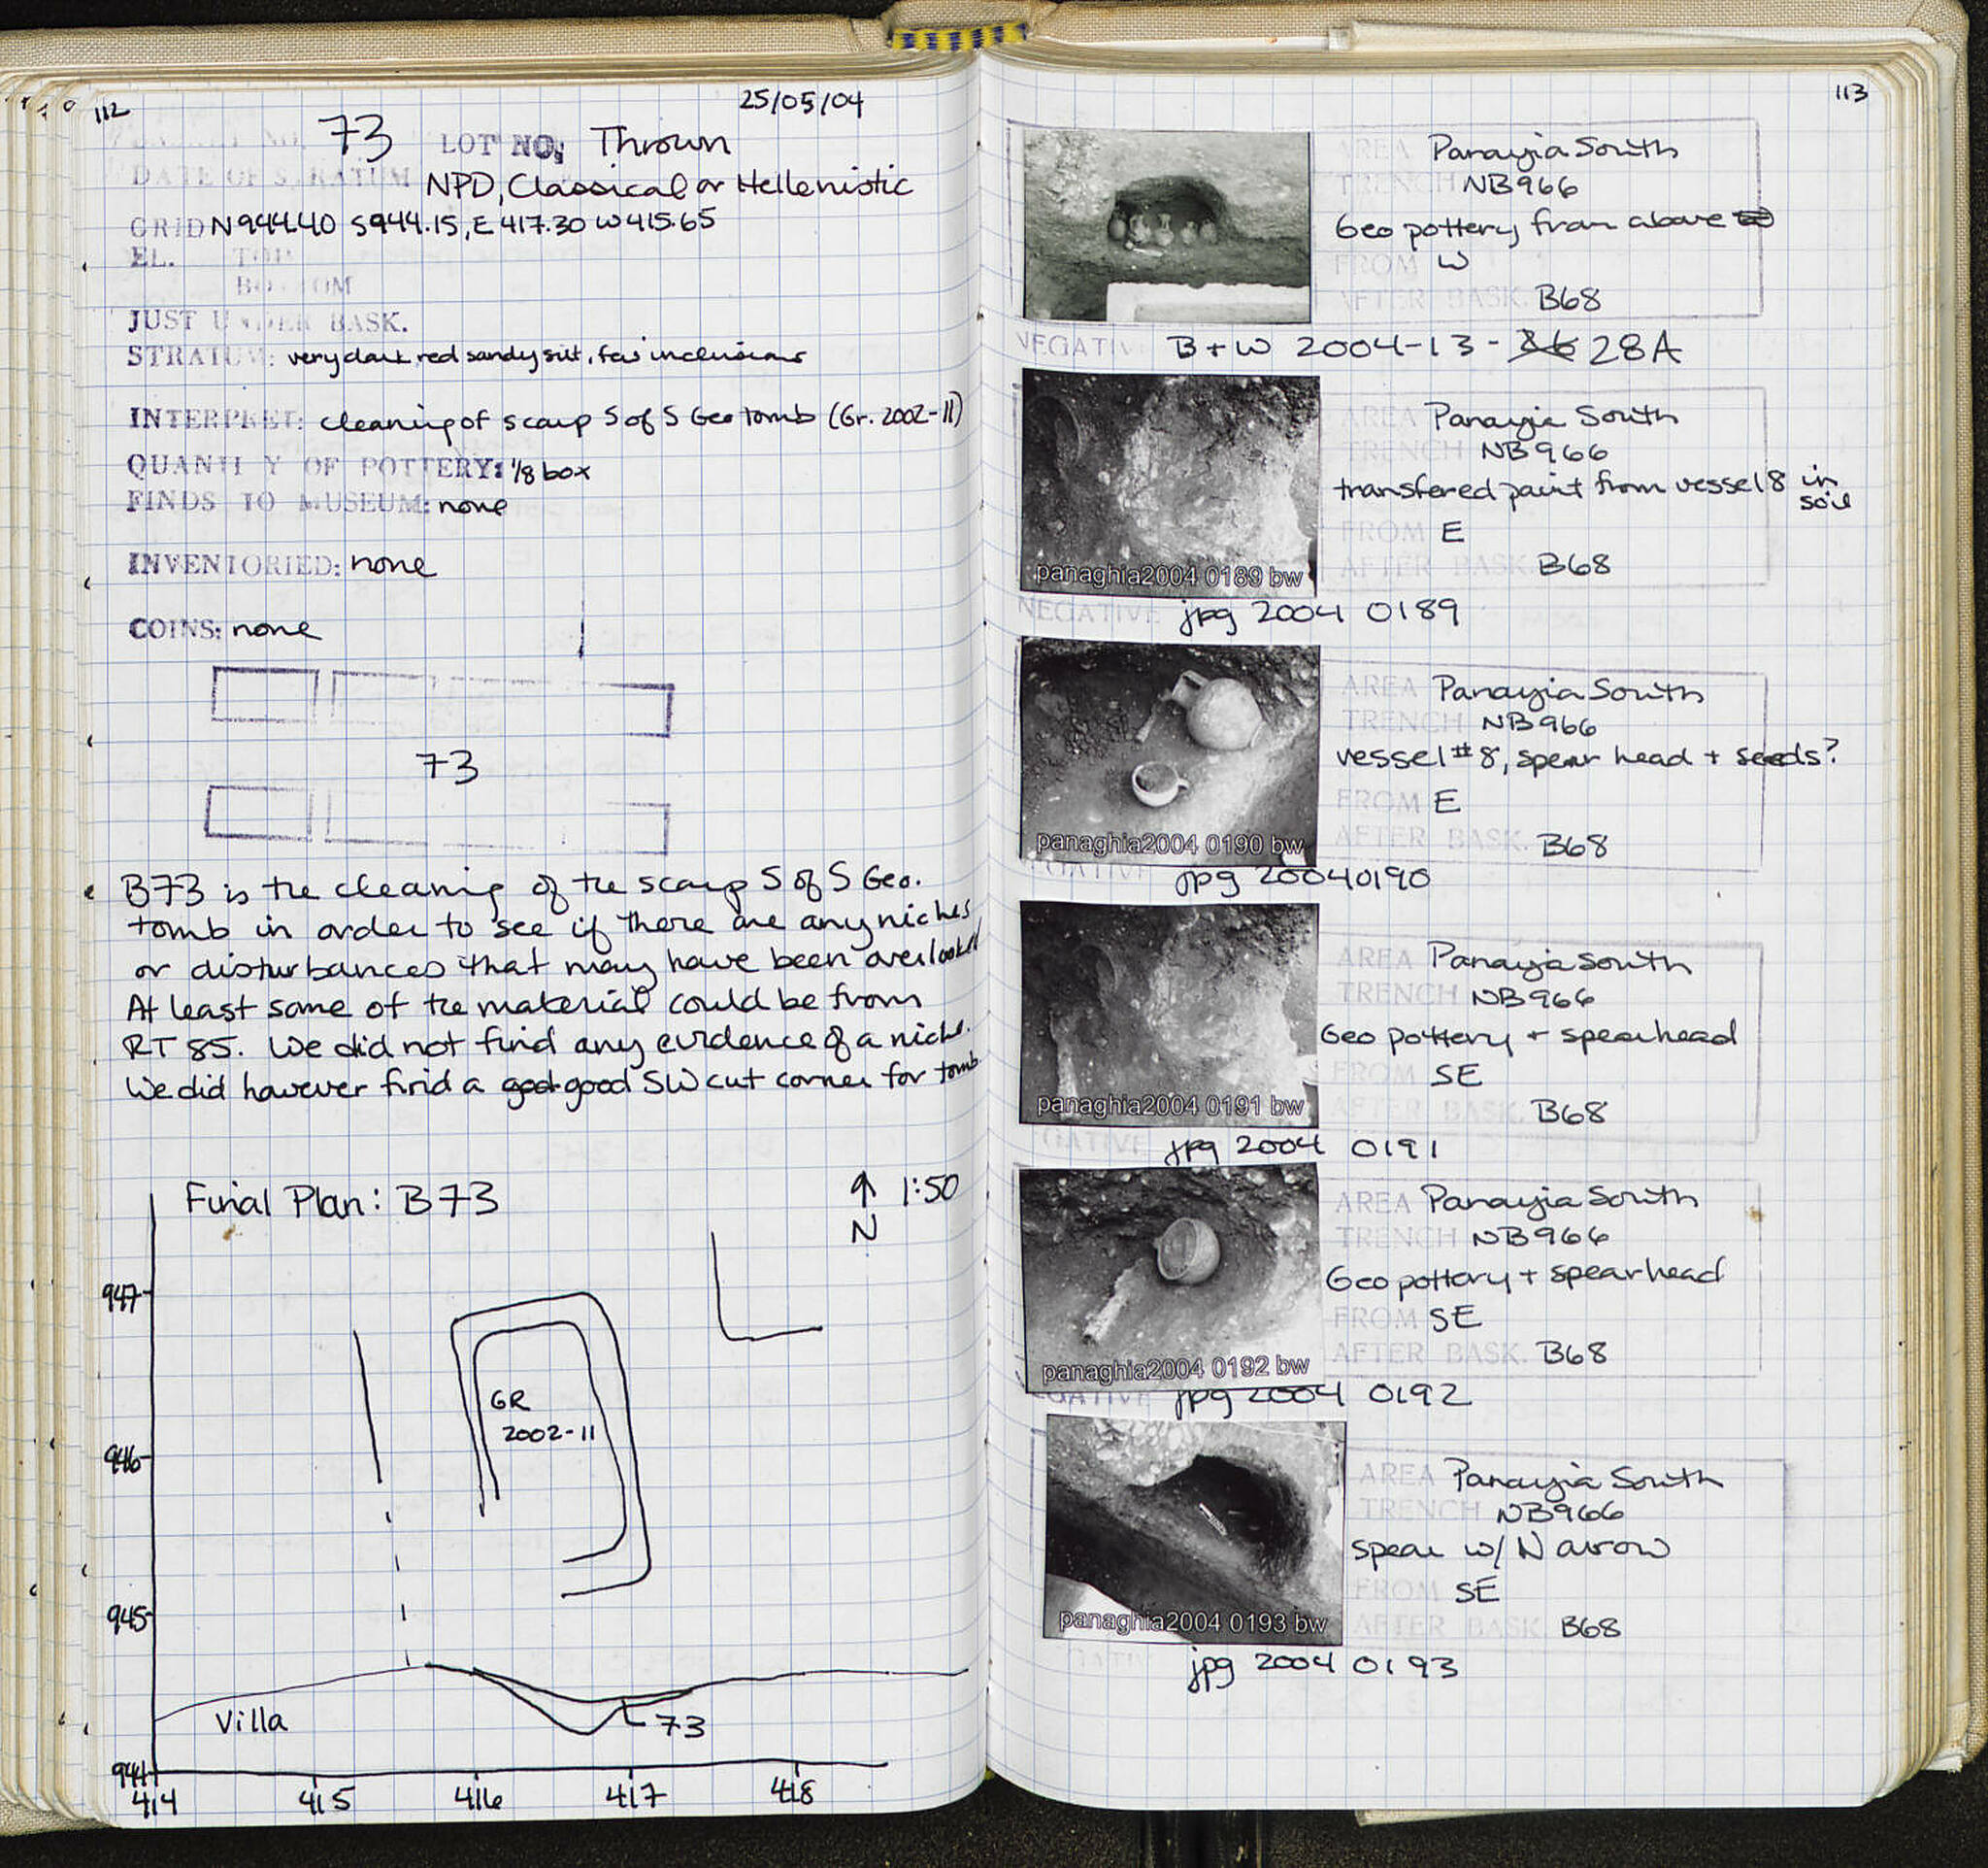 112
25/05/04
73 LOT NO: Thrown
DATE OF STRATUM NPD, Classical or Hellenistic
GRID N944.40 S944.15, E417.30 W415.65
EL. TOP
BOTTOM
JUST UNDER BASK.
STRATUM: very dark red sandy silt, few inclusions
INTERPRET: cleaning of scarp S of S Geo tomb (Gr. 2002-11)
QUANTITY OF POTTERY: 1/8 box
FINDS TO MUSEUM: none
INVENTORIED: none
COINS: none
73
B73 is the cleaning of the scarp S of S Geo.
tomb in order to see if there are any niches
or disturbances that may have been overlooked
At least some of the material could be from
RT 85. We did not find any evidence of a niche.
We did however find a good SW cut corner for tomb
Final Plan: B73
1:50
N
947
946
945
944
GR
2002-11
Villa
73
414 415 416 417 418
113
AREA Panayia South
TRENCH NB966
Geo pottery from above
FROM W
AFTER BASK. B68
NEGATIVE B+W 2004-13-28A
AREA Panayia South
TRENCH NB966
transfered paint from vessel 8 in soil
FROM E
AFTER BASK. B68
panaghia2004 0189 bw
NEGATIVE jpg 2004 0189
AREA Panayia South
TRENCH NB966
vessel #8, spear head + seeds?
FROM E
AFTER BASK. B68
panaghia2004 0190 bw
NEGATIVE jpg 20040190
AREA Panayia South
TRENCH NB966
Geo pottery + spearhead
FROM SE
AFTER BASK. B68
panaghia2004 0191 bw
NEGATIVE jpg 2004 0191
AREA Panayia South
TRENCH NB966
Geo pottery + spearhead
FROM SE
AFTER BASK. B68
panaghia2004 0192 bw
NEGATIVE jpg 2004 0192
AREA Panayia South
TRENCH NB966
spear w/ N arrow
FROM SE
AFTER BASK. B68
panaghia2004 0193 bw
jpg 2004 0193